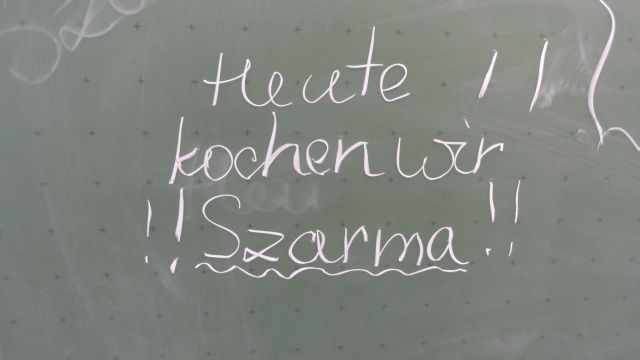 Heute !!
kochen wir
!! Szarma !!